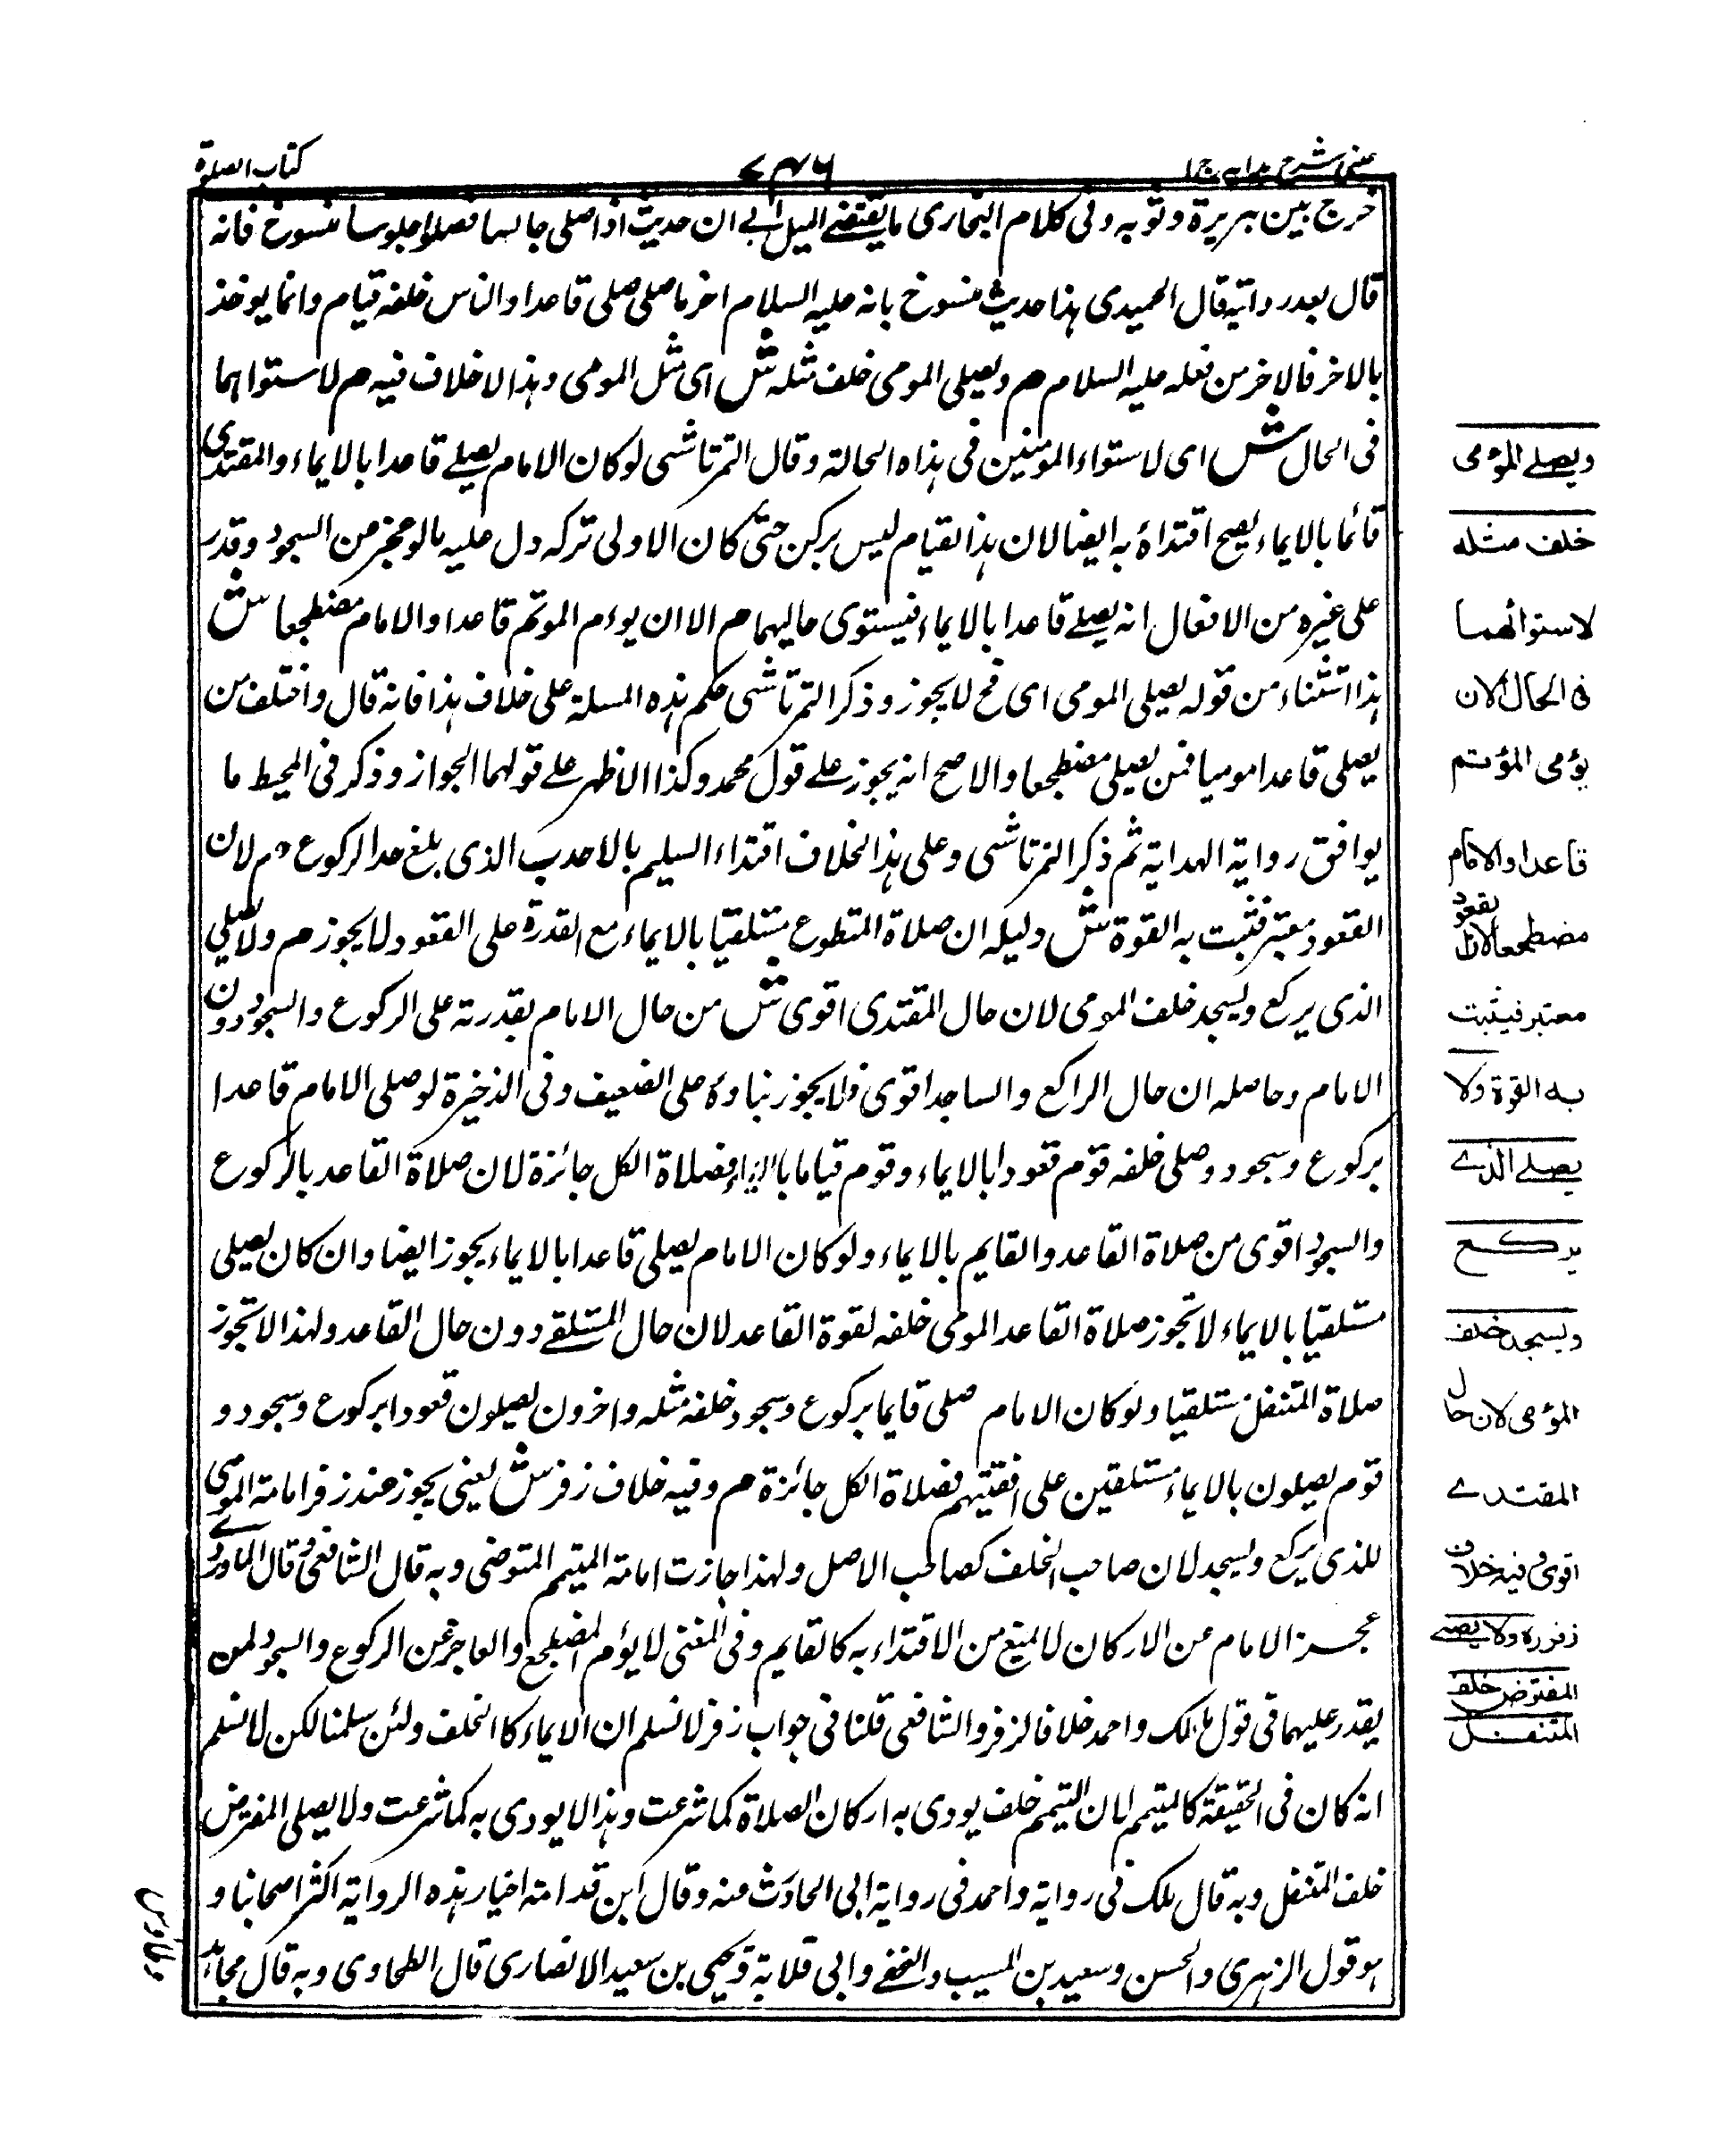 عینی شرح ہدایہ ج ا
۷۴۶
کتاب الصلوة
خرج بین بریرة وثوبہ وفی کلام البخاری ما یقتضے المیل الے ان حدیث اذا صلی جالسا فصلوا جلوسا منسوخ فانہ
قال بعد روایتہ قال الحمیدی ہذا حدیث منسوخ بانہ علیہ السلام اخر ما صلی صلی قاعدا والناس خلفہ قیام وانما یوخذ
بالاخر فالاخر من فعلہ علیہ السلام م ویصلی المومی خلف مثلہ ش ای مثل المومی وہذا لا خلاف فیہ م لاستوائہما
فی الحال ش ای لاستواء المومئین فی ہذاہ الحالة وقال التمرتاشی لو کان الامام یصلے قاعدا بالایماء والمقتدی
قائما بالایماء یصح اقتداؤہ بہ ایضا لان ہذا القیام لیس برکن حتی کان الاولی ترکہ دل علیہ ما لو عجز من السجود وقدر
علی غیرہ من الافعال انہ یصلے قاعدا بالایماء فیستوی حالیہما م الا ان یوءم الموتم قاعدا والامام مضطجعا ش
ہذا استثناء من قولہ یصلی المومی ای فح لا یجوز وذکر التمرتاشی حکم ہذہ المسلة علی خلاف ہذا فانہ قال واختلف من
یصلی قاعدا مومیا فمن یصلی مضطجعا والاصح انہ یجوز علے قول محمد وکذا الاظہر علے قولہما الجواز وذکر فی المحیط ما
یوافق روایة الہدایة ثم ذکر التمرتاشی وعلی ہذا الخلاف اقتداء السلیم بالاحدب الذی بلغ حد الرکوع م لان
القعود معتبر فثبت بہ القوة ش دلیلہ ان صلاة المتطوع مستلقیا بالایماء مع القدرة علی القعود لا یجوز م ولا یصلی
الذی یرکع ویسجد خلف المومی لان حال المقتدی اقوی ش من حال الامام بقدرتہ علی الرکوع والسجود دون
الامام وحاصلہ ان حال الراکع والساجد اقوی فلا یجوز بناوہ علی الضعیف وفی الذخیرة لو صلی الامام قاعدا
برکوع وسجود وصلی خلفہ قوم قعودا بالایماء وقوم قیاما بالایماء فصلاة الکل جائزة لان صلاة القاعد بالرکوع
والسجود اقوی من صلاة القاعد والقایم بالایماء ولو کان الامام یصلی قاعدا بالایماء یجوز ایضا وان کان یصلی
مستلقیا بالایماء لا تجوز صلاة القاعد المومی خلفہ لقوة القاعد لان حال المستلقے دون حال القاعد ولہذا لا تجوز
صلاة المتنفل مستلقیا ولو کان الامام صلی قایما برکوع وسجود خلفہ مثلہ واخرون یصلون قعودا برکوع وسجود و
قوم یصلون بالایماء مستلقین علی اقفیتہم فصلاة الکل جائزة م وفیہ خلاف زفر ش یعنی یجوز عند زفر امامة المومی
للذی یرکع ویسجد لان صاحب الخلف کصاحب الاصل ولہذا جازت امامة المتیمم المتوضی وبہ قال الشافعی وقال الماوردے
عجز الامام عن الارکان لا یمنع من الاقتداء بہ کالقایم وفی المغنی لا یؤم المضطجع والعاجز عن الرکوع والسجود لمن
یقدر علیہما فی قول ملک واحمد خلافا لزفر والشافعی قلنا فی جواب زفر لا نسلم ان الایماء کالخلف ولئن سلمنا لکن لا نسلم
انہ کان فی الحقیقة کالمتیمم لان التیمم خلف یودی بہ ارکان الصلاة کما شرعت وہذا لا یودی بہ کما شرعت ولا یصلی المفترض
خلف المتنفل وبہ قال ملک فی روایة واحمد فی روایة ابی الحادث منہ وقال ابن قدامة اختیار ہذہ الروایة اکثر اصحابنا و
ہو قول الزہری والحسن وسعید بن المسیب والنخعے وابی قلابة ویحیی بن سعید الانصاری قال الطحاوی وبہ قال مجاہد
وطاؤس
ویصلے المؤمی
خلف مثلہ
لاستوائھما
فی الحال الا ان
یؤمی المؤتم
قاعدا والامام
مضطجعا لان القعود
معتبر فیثبت
بہ القوة ولا
یصلے الذے
یرکع
ویسجد خلف
المؤمی لان حال
المقتدے
اقوی وفیہ خلاف
زفررہ ولا یصلے
المفترض خلف
المتنفل